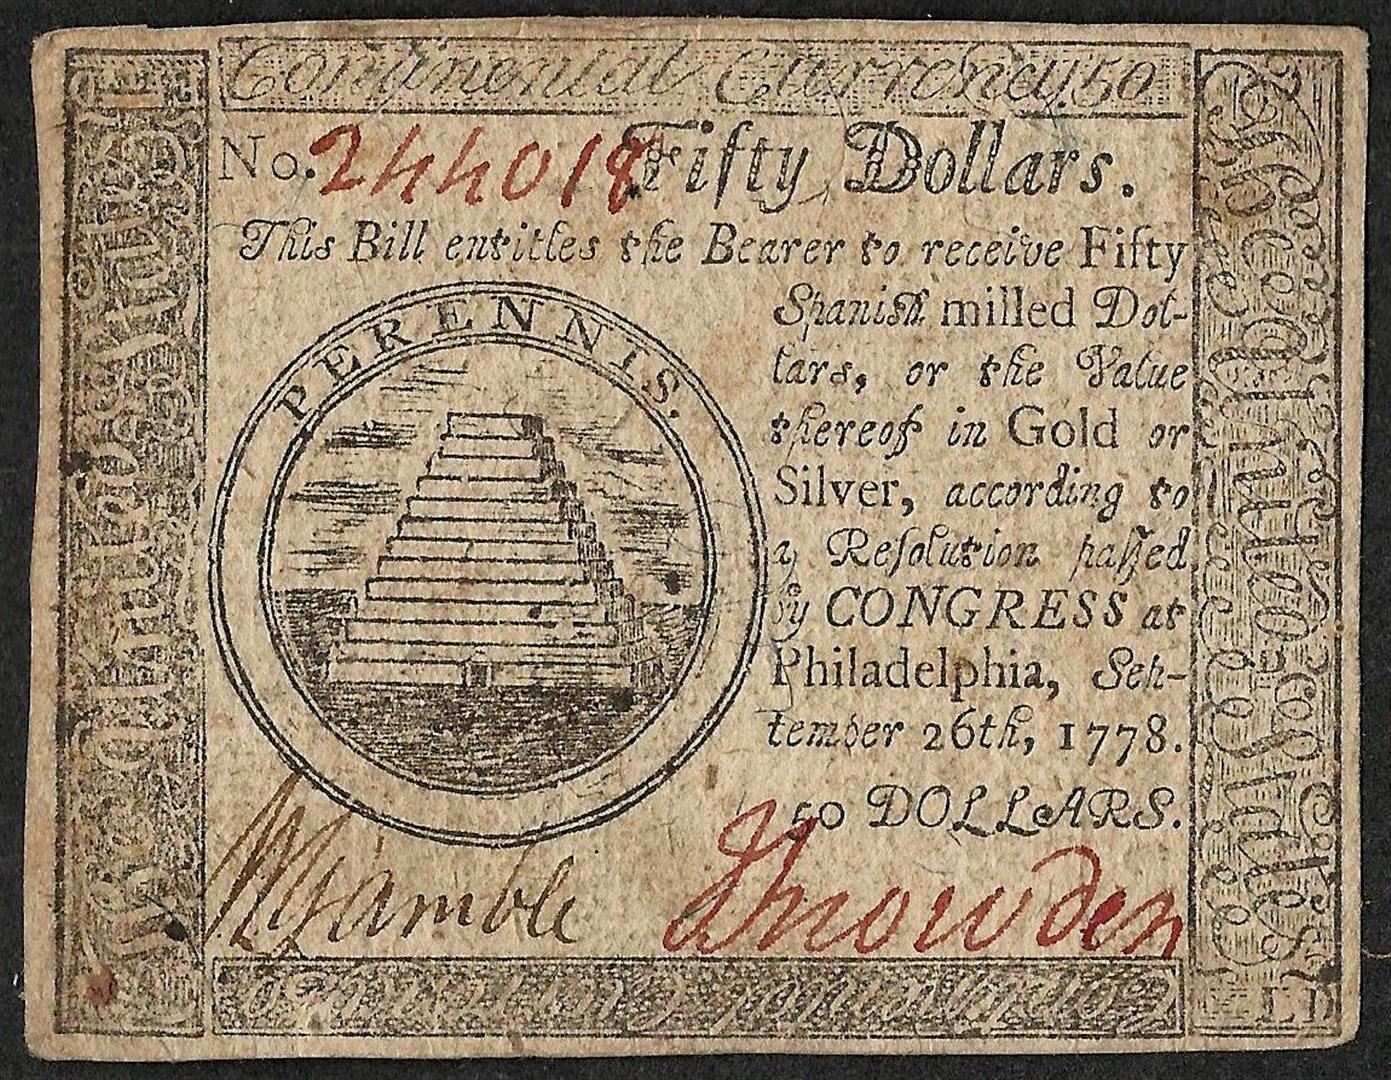 Continental Currency. 50
No. 244018 Fifty Dollars.
This Bill entitles the Bearer to receive Fifty
Spanish milled Dol-
lars, or the Value
thereof in Gold or
Silver, according to
a Resolution passed
by CONGRESS at
Philadelphia, Sep-
tember 26th, 1778.
50 DOLLARS.
PERENNIS.
W Gamble
J Snowden
The United States
The United States